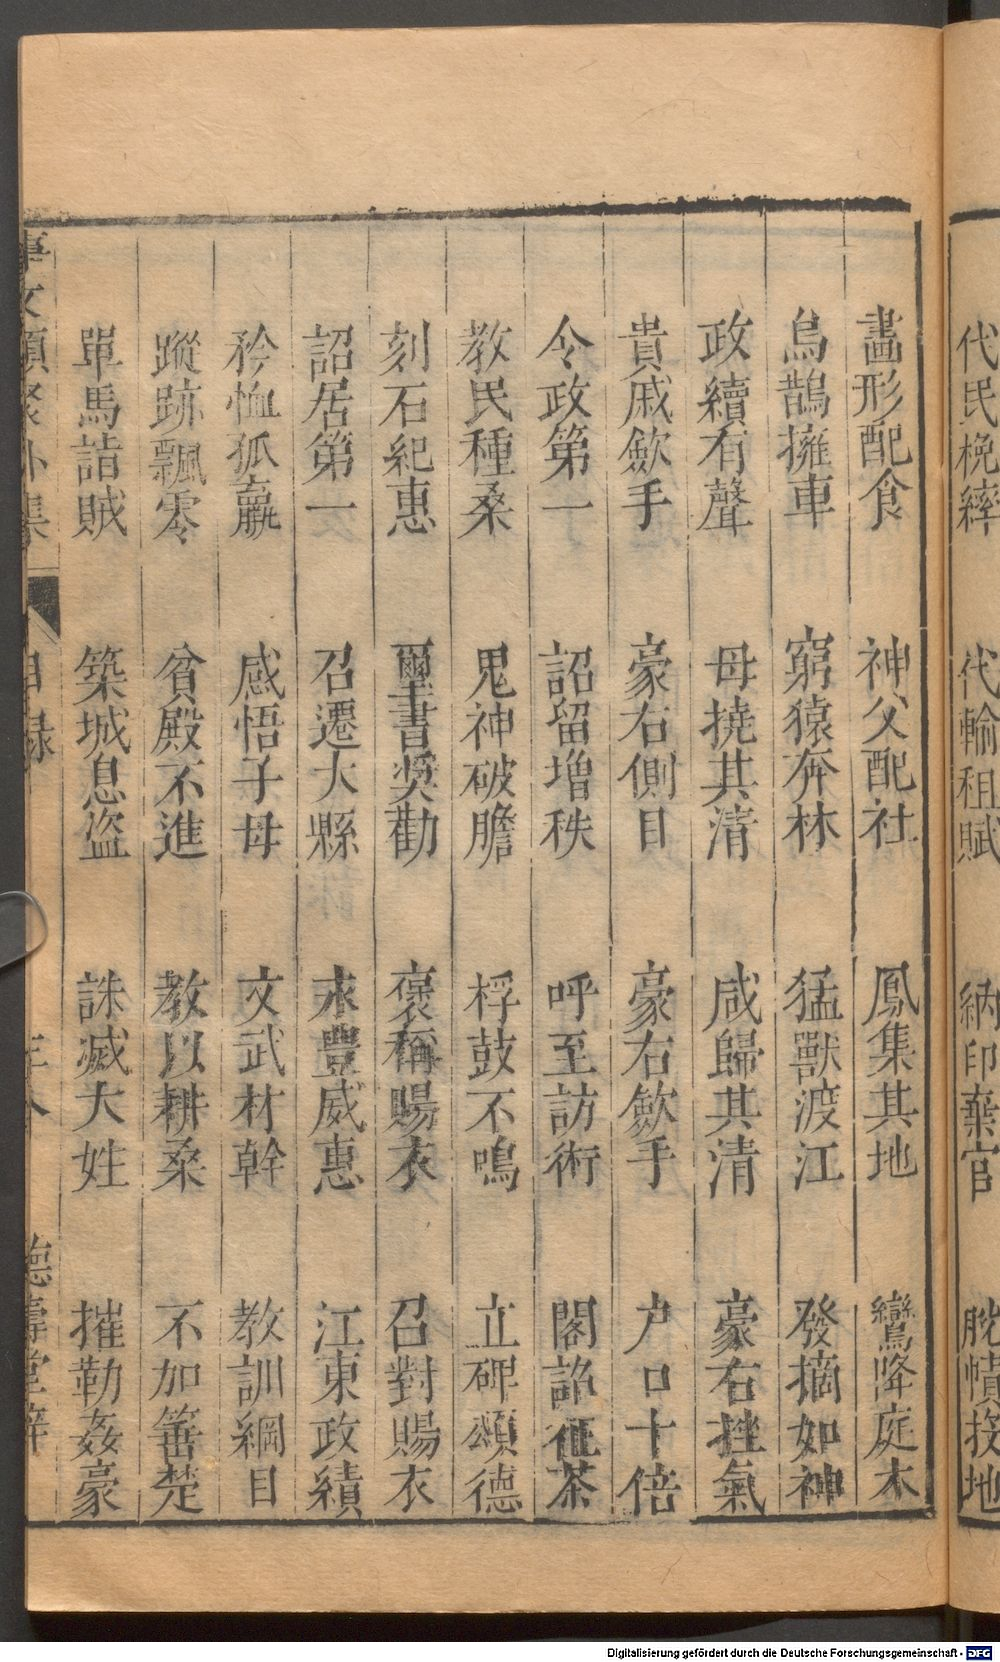 代民梲縡　代輸租賦　納印棄官　脫幘投地
畫形配食　神父配社　鳳集其地　鸞降庭木
烏鵲擁車　窮猿奔林　猛獸渡江　發摘如神
政續有聲　母撓其清　咸歸其清　豪右挫氣
貴戚歛手　豪右側目　豪右歛手　戶口十倍
令政第一　詔留增秩　呼至訪術　閣詔征茶
教民種桑　鬼神破膽　桴鼓不鳴　立碑頌德
刻石紀惠　璽書獎勸　褒稱賜衣　召對賜衣
詔居第一　召遷大縣　永豐威惠　江東政績
矜恤孤羸　感悟子母　文武材幹　教訓綱目
蹤跡飄零　貧殿不進　教以耕桑　不加箠楚
單馬詣賊　築城息盜　誅滅大姓　摧勒姦豪
事文類聚外集　目錄　德壽堂梓
Digitalisierung gefördert durch die Deutsche Forschungsgemeinschaft - DFG